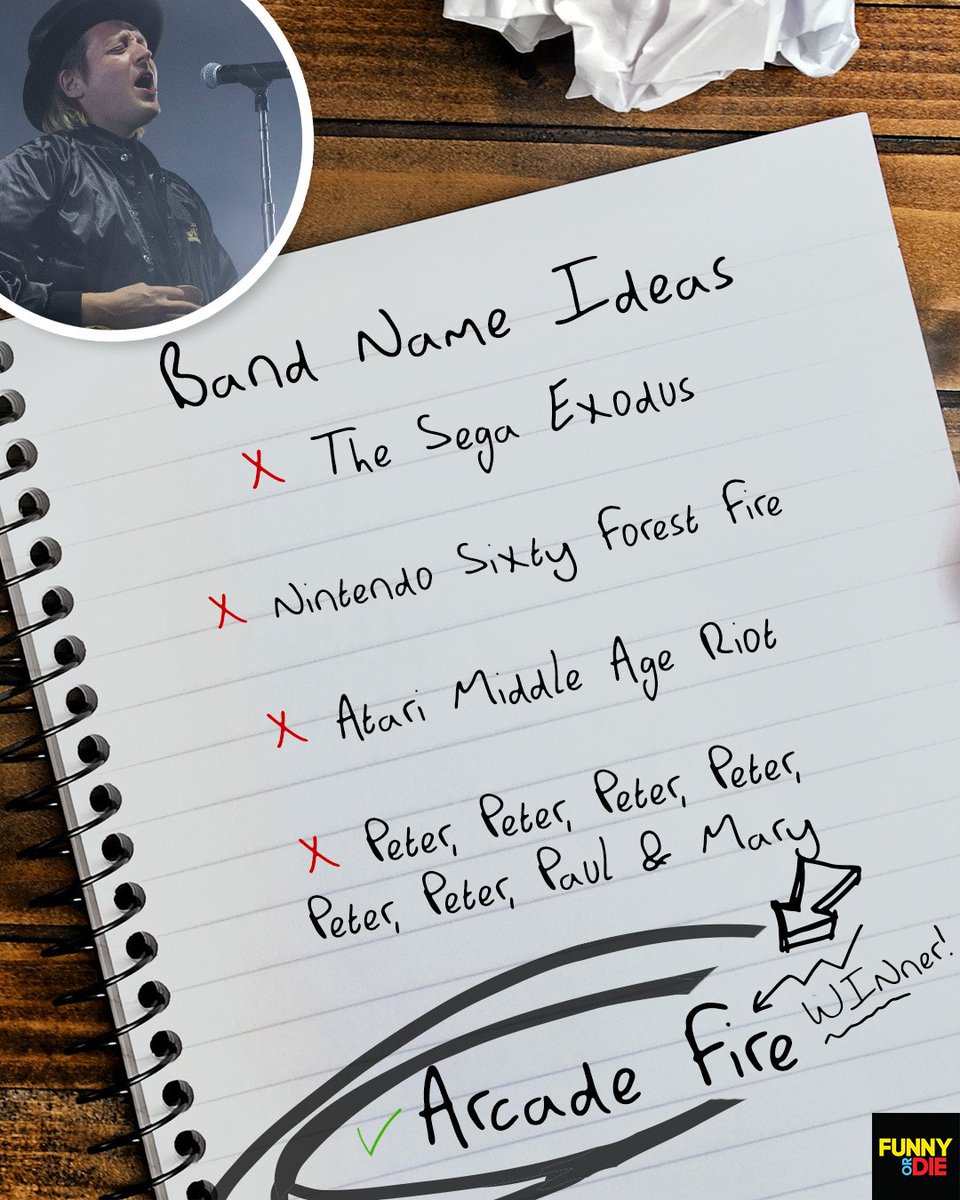 Band Name Ideas
X The Sega Exodus
X Nintendo Sixty Forest Fire
X Atari Middle Age Riot
X Peter, Peter, Peter, Peter,
Peter, Peter, Paul & Mary
WINner!
✓ Arcade Fire
FUNNY
OR DIE